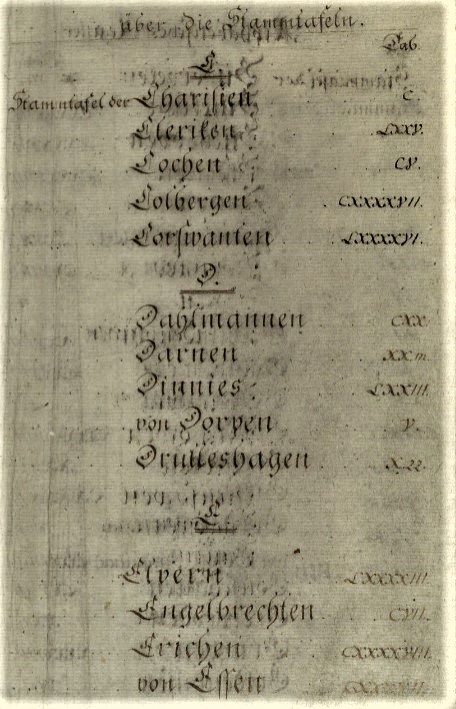 über die Stammtafeln.
Tab.
C.
Stammtafel der Charisien C
Cleriken LXXV.
Cochen CV.
Colbergen CXXXXVII.
Corswanten LXXXXVI.
D.
Dahlmannen CXX.
Darnen
Dinnies LXXIII.
von Dorpen V.
E
Elvern LXXXXIII.
Engelbrechten CVII.
Erichen CXXXXVIII.
von Essen